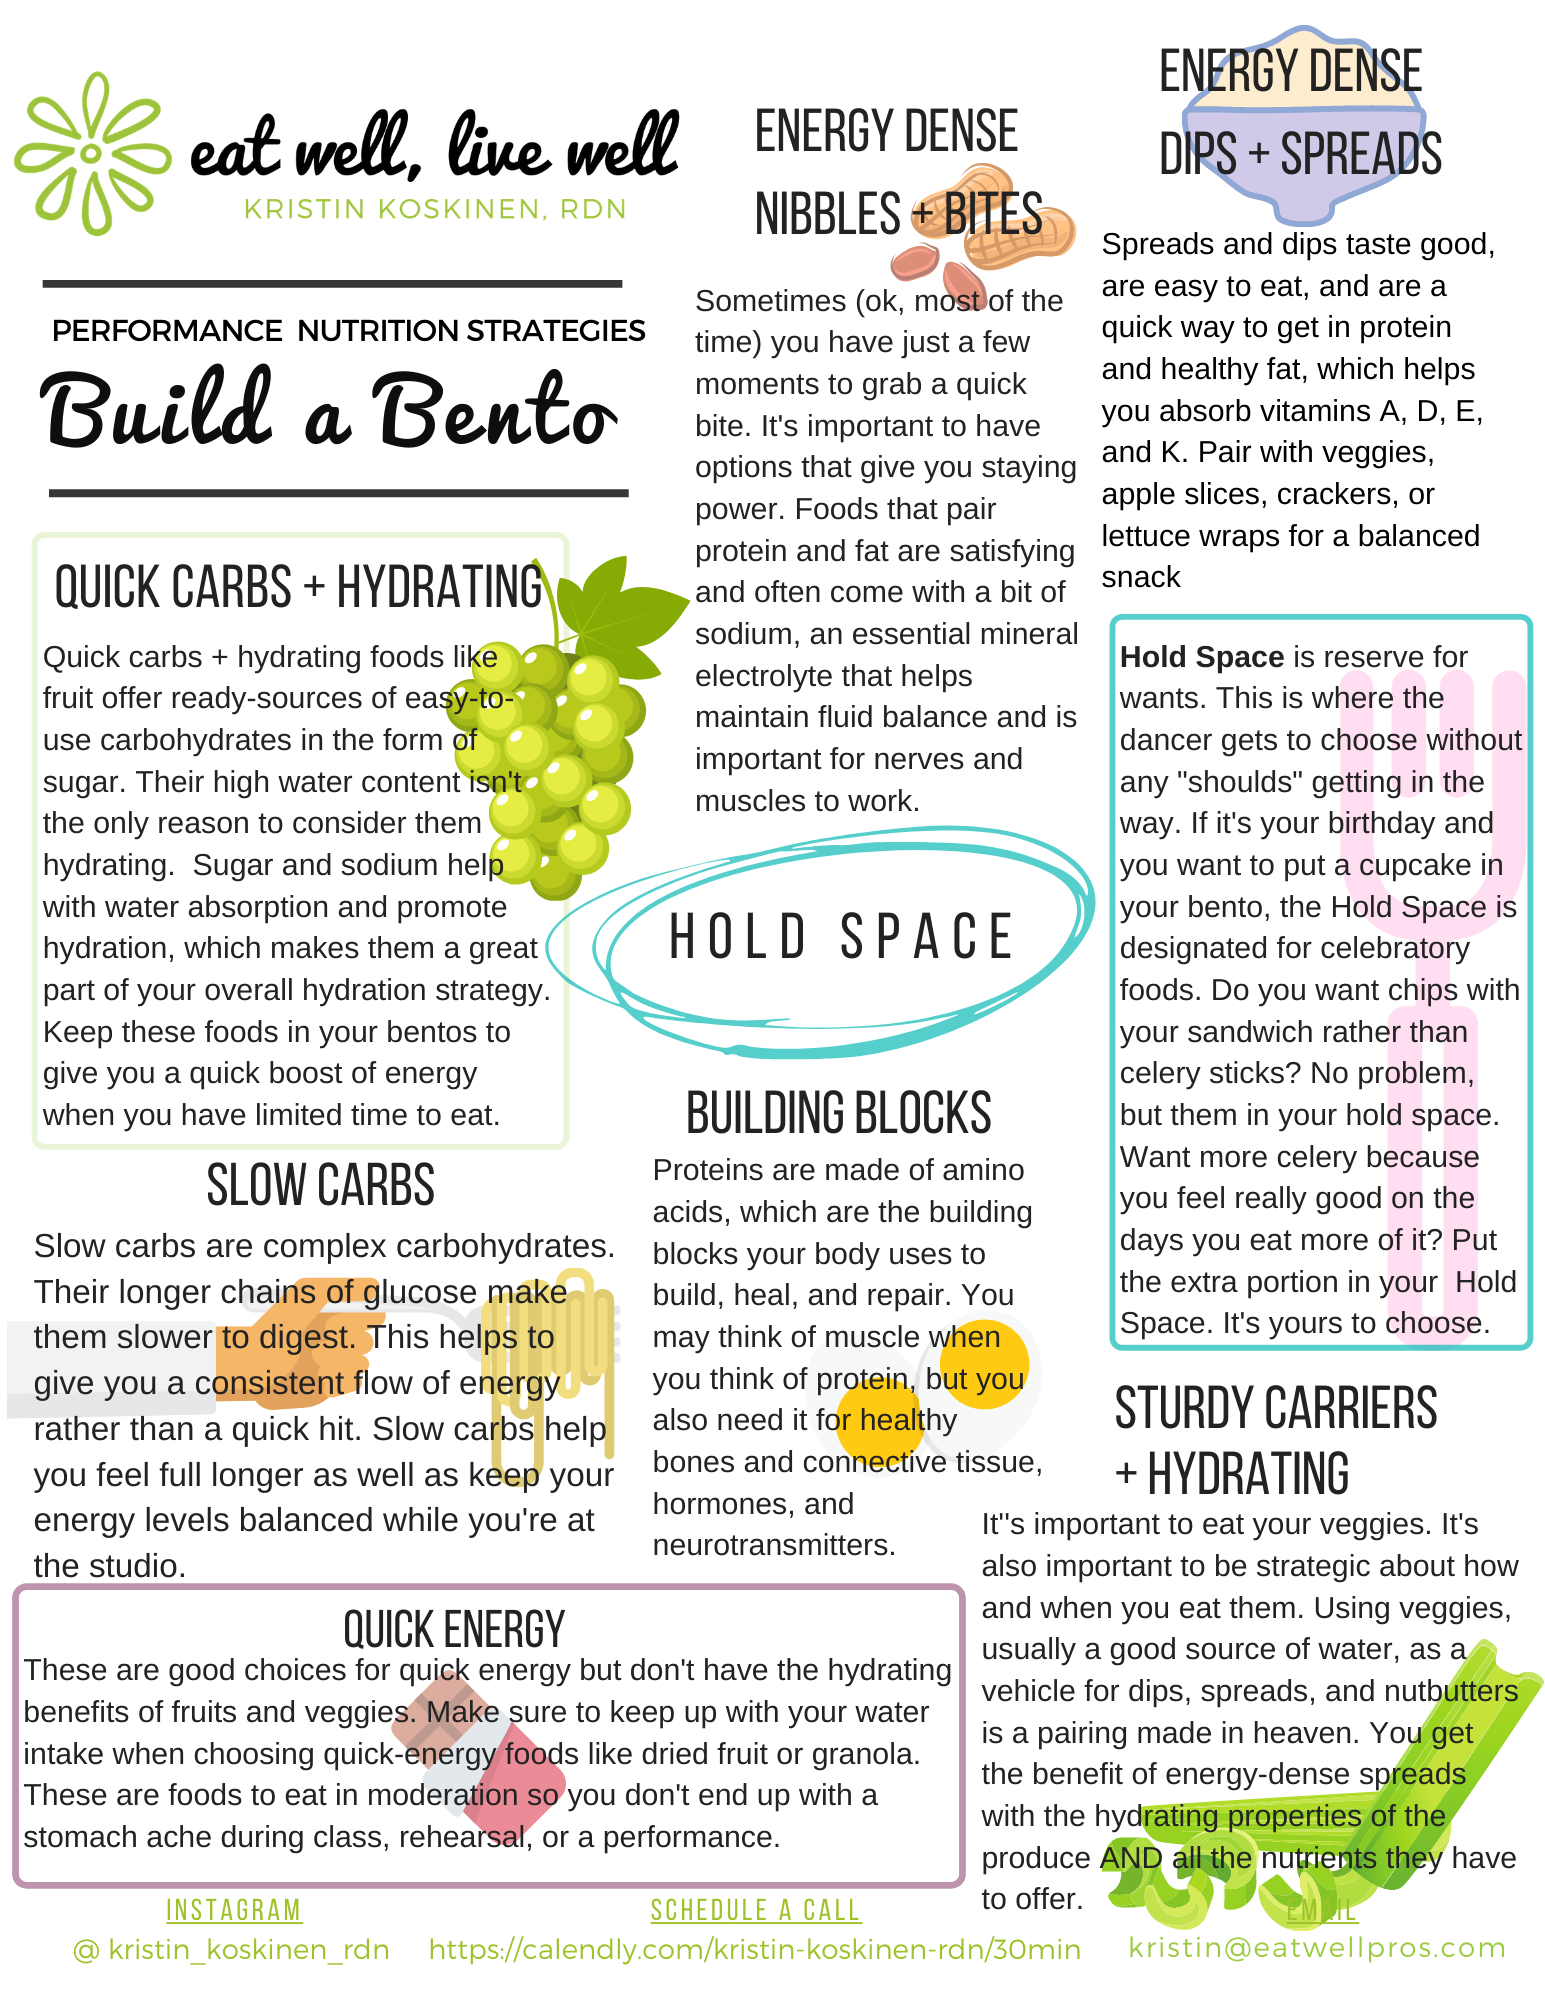 eat well, live well
KRISTIN KOSKINEN, RDN
PERFORMANCE NUTRITION STRATEGIES
Build a Bento
QUICK CARBS + HYDRATING
Quick carbs + hydrating foods like
fruit offer ready-sources of easy-to-
use carbohydrates in the form of
sugar. Their high water content isn't
the only reason to consider them
hydrating.  Sugar and sodium help
with water absorption and promote
hydration, which makes them a great
part of your overall hydration strategy.
Keep these foods in your bentos to
give you a quick boost of energy
when you have limited time to eat.
SLOW CARBS
Slow carbs are complex carbohydrates.
Their longer chains of glucose make
them slower to digest. This helps to
give you a consistent flow of energy
rather than a quick hit. Slow carbs help
you feel full longer as well as keep your
energy levels balanced while you're at
the studio.
ENERGY DENSE
NIBBLES + BITES
Sometimes (ok, most of the
time) you have just a few
moments to grab a quick
bite. It's important to have
options that give you staying
power. Foods that pair
protein and fat are satisfying
and often come with a bit of
sodium, an essential mineral
electrolyte that helps
maintain fluid balance and is
important for nerves and
muscles to work.
HOLD SPACE
BUILDING BLOCKS
Proteins are made of amino
acids, which are the building
blocks your body uses to
build, heal, and repair. You
may think of muscle when
you think of protein, but you
also need it for healthy
bones and connective tissue,
hormones, and
neurotransmitters.
ENERGY DENSE
DIPS + SPREADS
Spreads and dips taste good,
are easy to eat, and are a
quick way to get in protein
and healthy fat, which helps
you absorb vitamins A, D, E,
and K. Pair with veggies,
apple slices, crackers, or
lettuce wraps for a balanced
snack
Hold Space is reserve for
wants. This is where the
dancer gets to choose without
any "shoulds" getting in the
way. If it's your birthday and
you want to put a cupcake in
your bento, the Hold Space is
designated for celebratory
foods. Do you want chips with
your sandwich rather than
celery sticks? No problem,
but them in your hold space.
Want more celery because
you feel really good on the
days you eat more of it? Put
the extra portion in your  Hold
Space. It's yours to choose.
STURDY CARRIERS
+ HYDRATING
It"s important to eat your veggies. It's
also important to be strategic about how
and when you eat them. Using veggies,
usually a good source of water, as a
vehicle for dips, spreads, and nutbutters
is a pairing made in heaven. You get
the benefit of energy-dense spreads
with the hydrating properties of the
produce AND all the nutrients they have
to offer.
QUICK ENERGY
These are good choices for quick energy but don't have the hydrating
benefits of fruits and veggies. Make sure to keep up with your water
intake when choosing quick-energy foods like dried fruit or granola.
These are foods to eat in moderation so you don't end up with a
stomach ache during class, rehearsal, or a performance.
INSTAGRAM
@ kristin_koskinen_rdn
SCHEDULE A CALL
https://calendly.com/kristin-koskinen-rdn/30min
EMAIL
kristin@eatwellpros.com